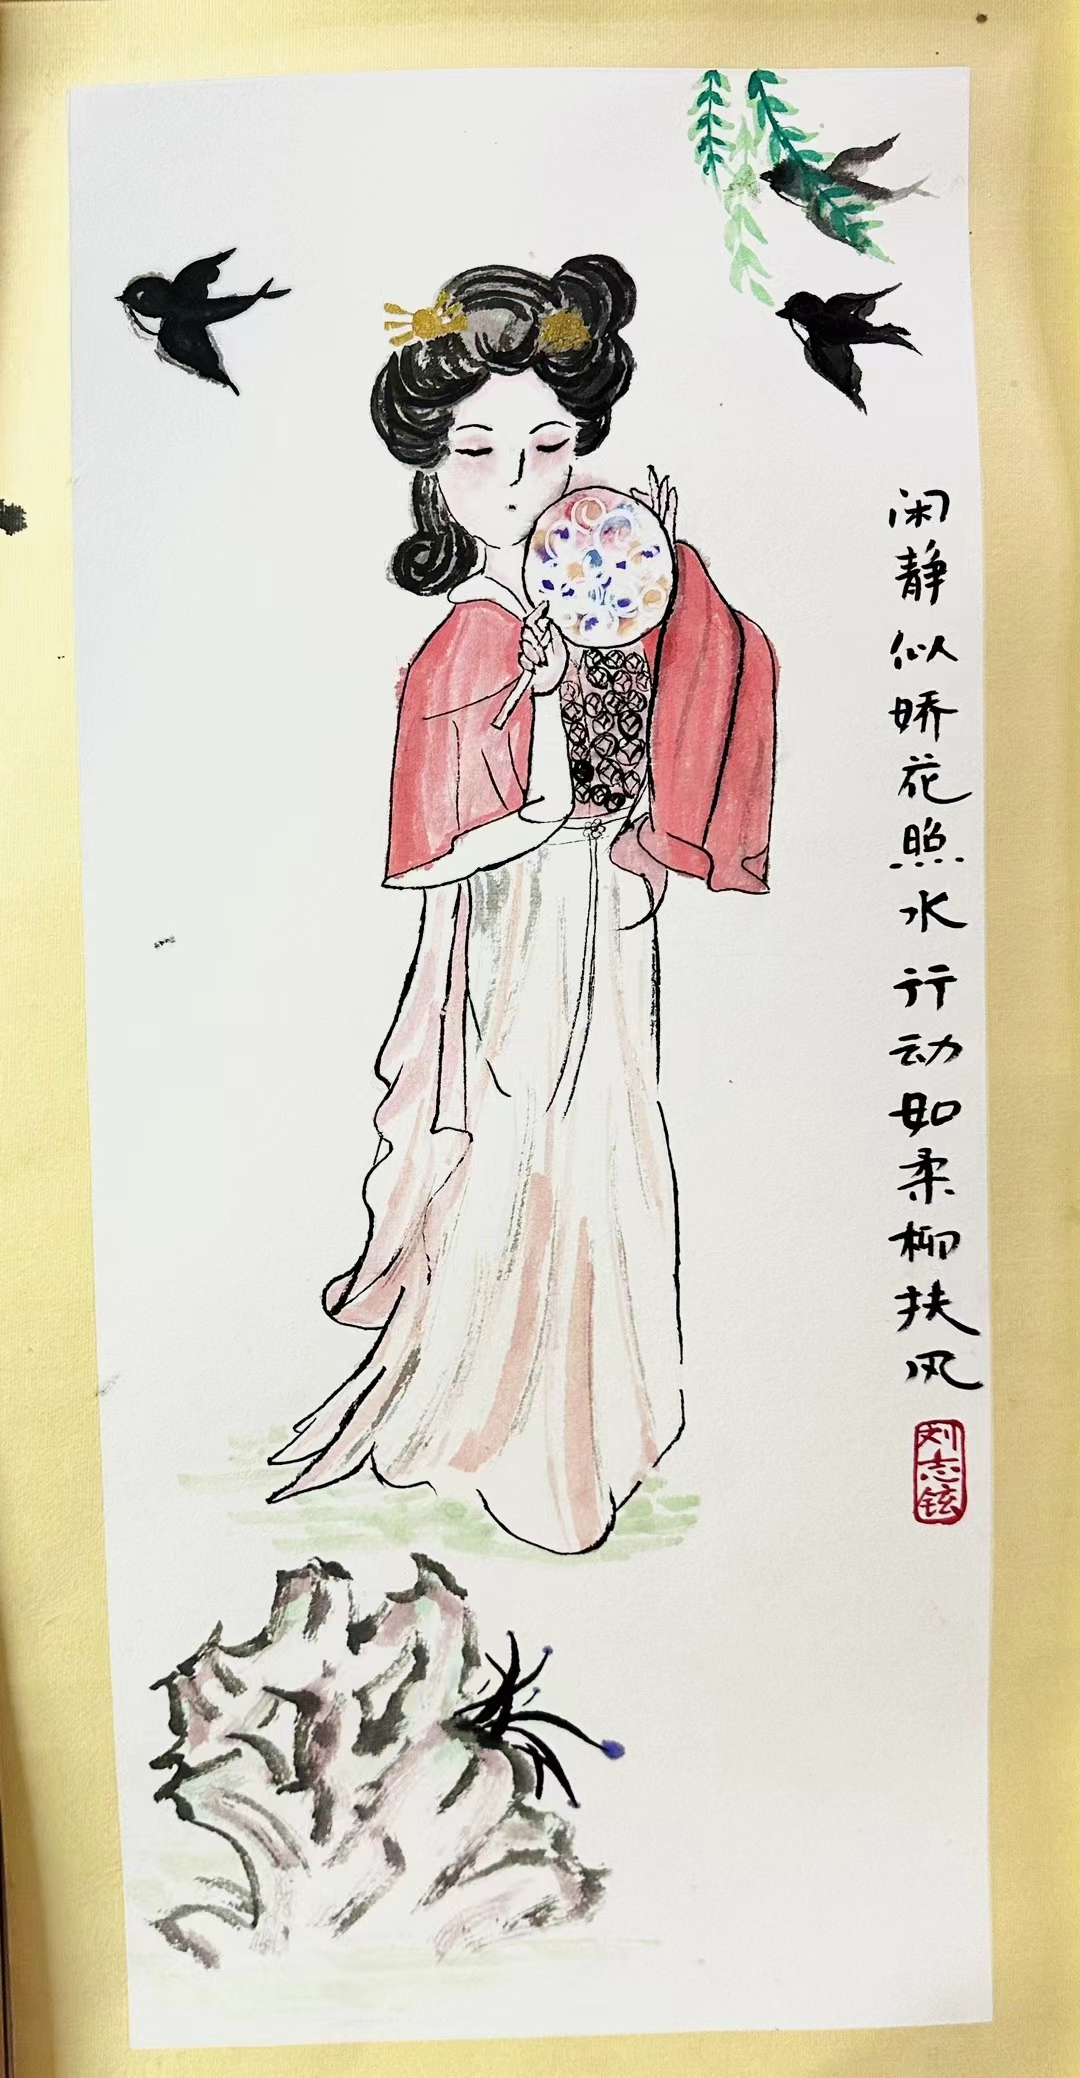 闲静似娇花照水行动如柔柳扶风
刘志铉